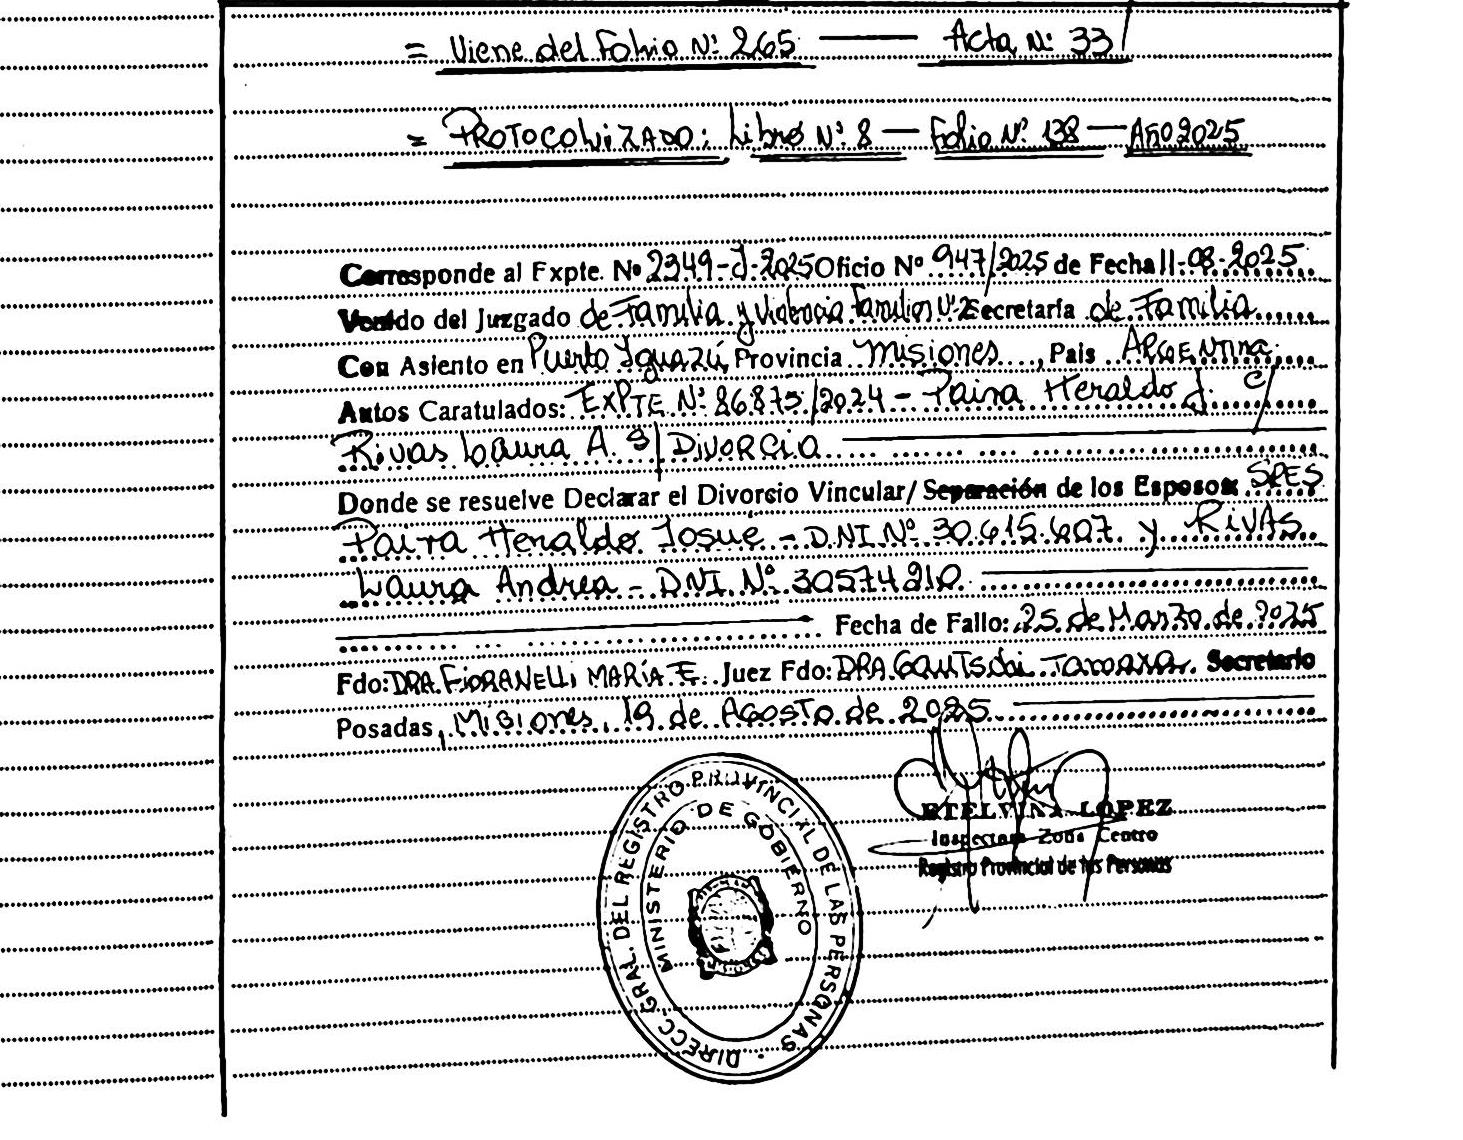 = Viene del Folio Nº 265 — Acta Nº 33/
= PROTOCOLIZADO: Libro Nº 8 — Folio Nº 138 — Año 2025
Corresponde al Expte. Nº 2349-J-2025 Oficio Nº 947/2025 de Fecha 11-08-2025
Venido del Juzgado de Familia y Violencia Familiar Nº 2 Secretaría de Familia
Con Asiento en Puerto Iguazú, Provincia Misiones, País ARGENTINA
Autos Caratulados: EXPTE Nº 86875/2024 - Paira Heraldo J. c/
Rivas Laura A. S/ DIVORCIO
Donde se resuelve Declarar el Divorcio Vincular/ Separación de los Esposos: SRES
Paira Heraldo Josué - DNI Nº 30.615.607 y RIVAS
Laura Andrea - DNI Nº 30574210
Fecha de Fallo: 25 de Marzo de 2025
Fdo: DRA. FIORANELLI MARÍA E. Juez Fdo: DRA Gautschi Tamara. Secretario
Posadas, Misiones, 19 de Agosto de 2025
ETELVINA LOPEZ
Inspectora Zona Centro
Registro Provincial de las Personas
DIRECC. GRAL. DEL REGISTRO PROVINCIAL DE LAS PERSONAS
MINISTERIO DE GOBIERNO